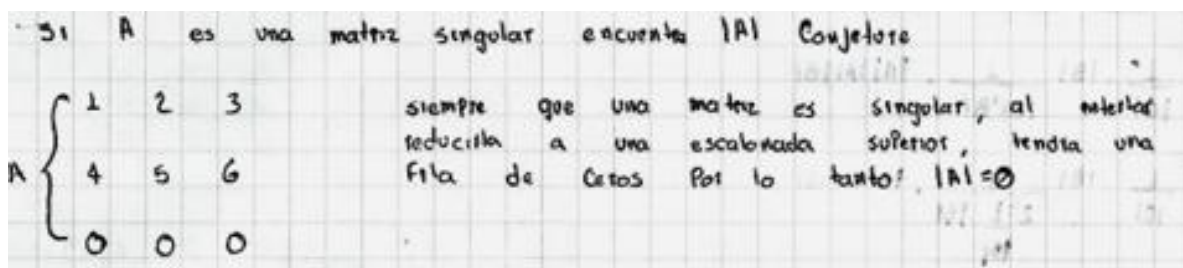 Si A es una matriz singular encuentra |A| Conjeture
1 2 3 siempre que una matriz es singular, al
reducirla a una escalonada superior, tendria una
A { 4 5 6 Fila de Ceros Por lo tanto: |A|=0
0 0 0